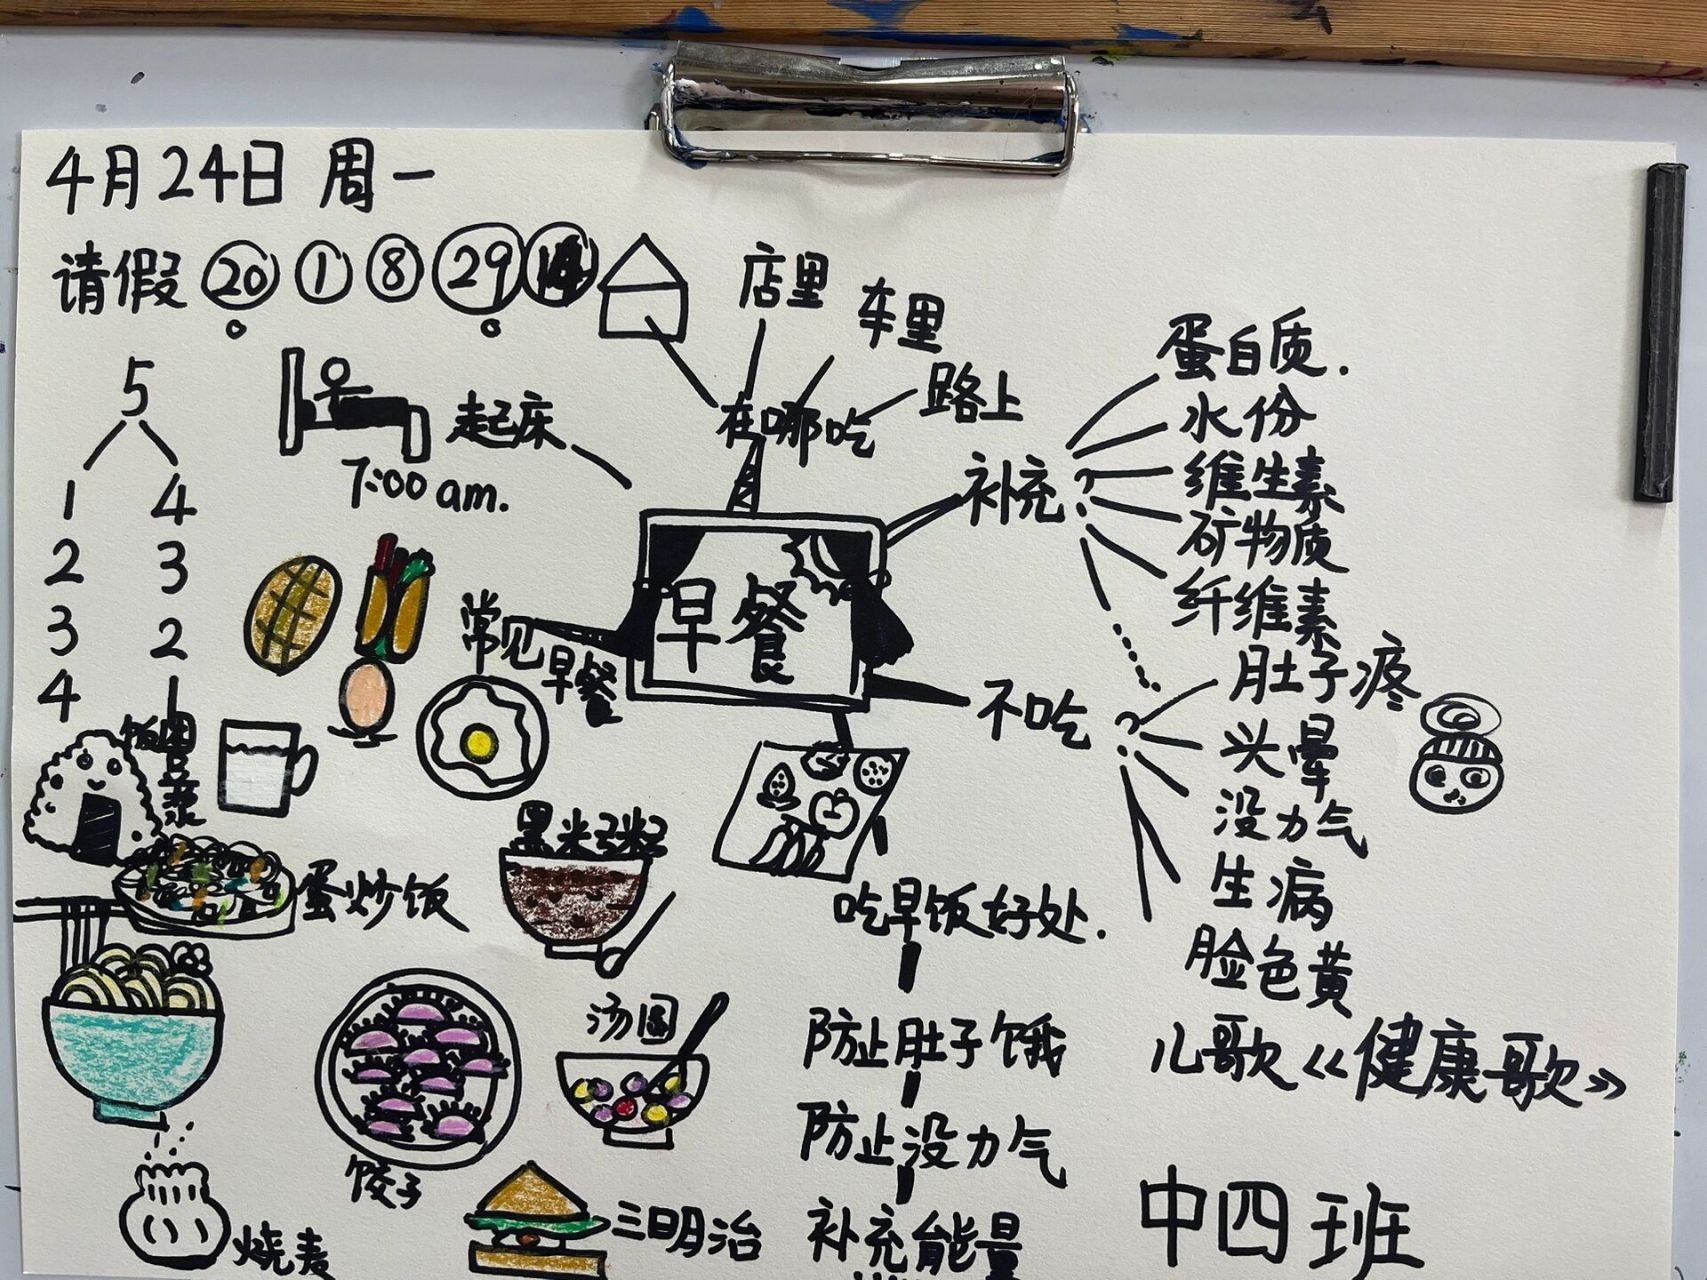 4月24日 周一
请假 20 1 8 29
5
1 4
2 3
3 2
4 1
起床
7:00 am.
店里
车里
路上
在哪吃
早餐
补充
?
蛋白质.
水份
维生素
矿物质
纤维素
不吃
?
肚子疼
头晕
没力气
生病
脸色黄
常见
早餐
饭团
豆浆
蛋炒饭
黑米粥
汤圆
饺子
烧麦
三明治
吃早饭好处.
防止肚子饿
防止没力气
补充能量
儿歌《健康歌》
中四班